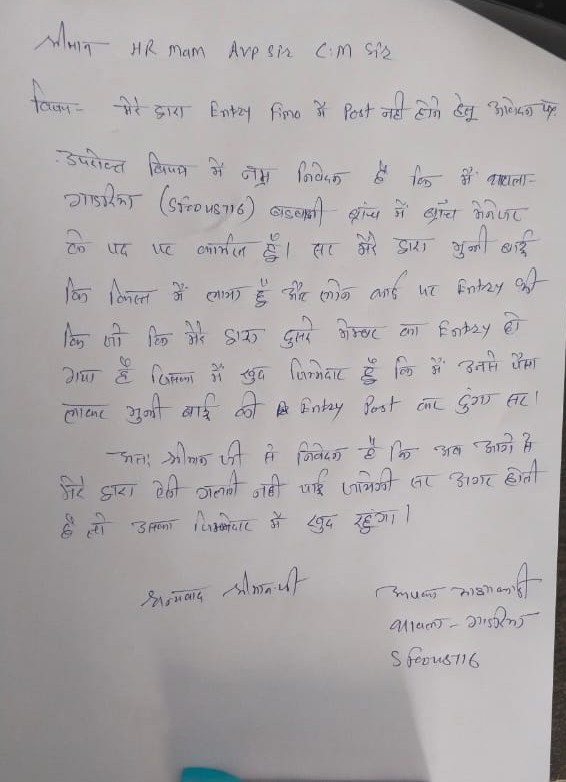 श्रीमान HR mam AVP sir C.M sir
विषय- मेरे द्वारा Entry Fimo में Post नही होने हेतु आवेदन पत्र
उपरोक्त विषय में नम्र निवेदन है कि मैं
गाडरिया बडवानी ब्रांच में ब्रांच मेनेजर
के पद पर कार्यरत हूँ। सर मेरे द्वारा मुन्नी बाई
कि किस्त में लाया हूँ और लोन कार्ड पर Entry की
कि जो कि मेरे द्वारा दुसरे मेम्बर का Entry हो
गया है जिसका में खुद जिम्मेदार हूँ कि में उनसे पैसा
लाकर मुन्नी बाई की Entry Post कर दुंगा सर।
अतः श्रीमान जी से निवेदन है कि अब आगे से
मेरे द्वारा ऐसी गलती नही पाई जायेगी सर अगर होती
है तो उसका जिम्मेदार में खुद रहुंगा।
धन्यवाद श्रीमान जी
आपका आज्ञाकारी
गाडरिया